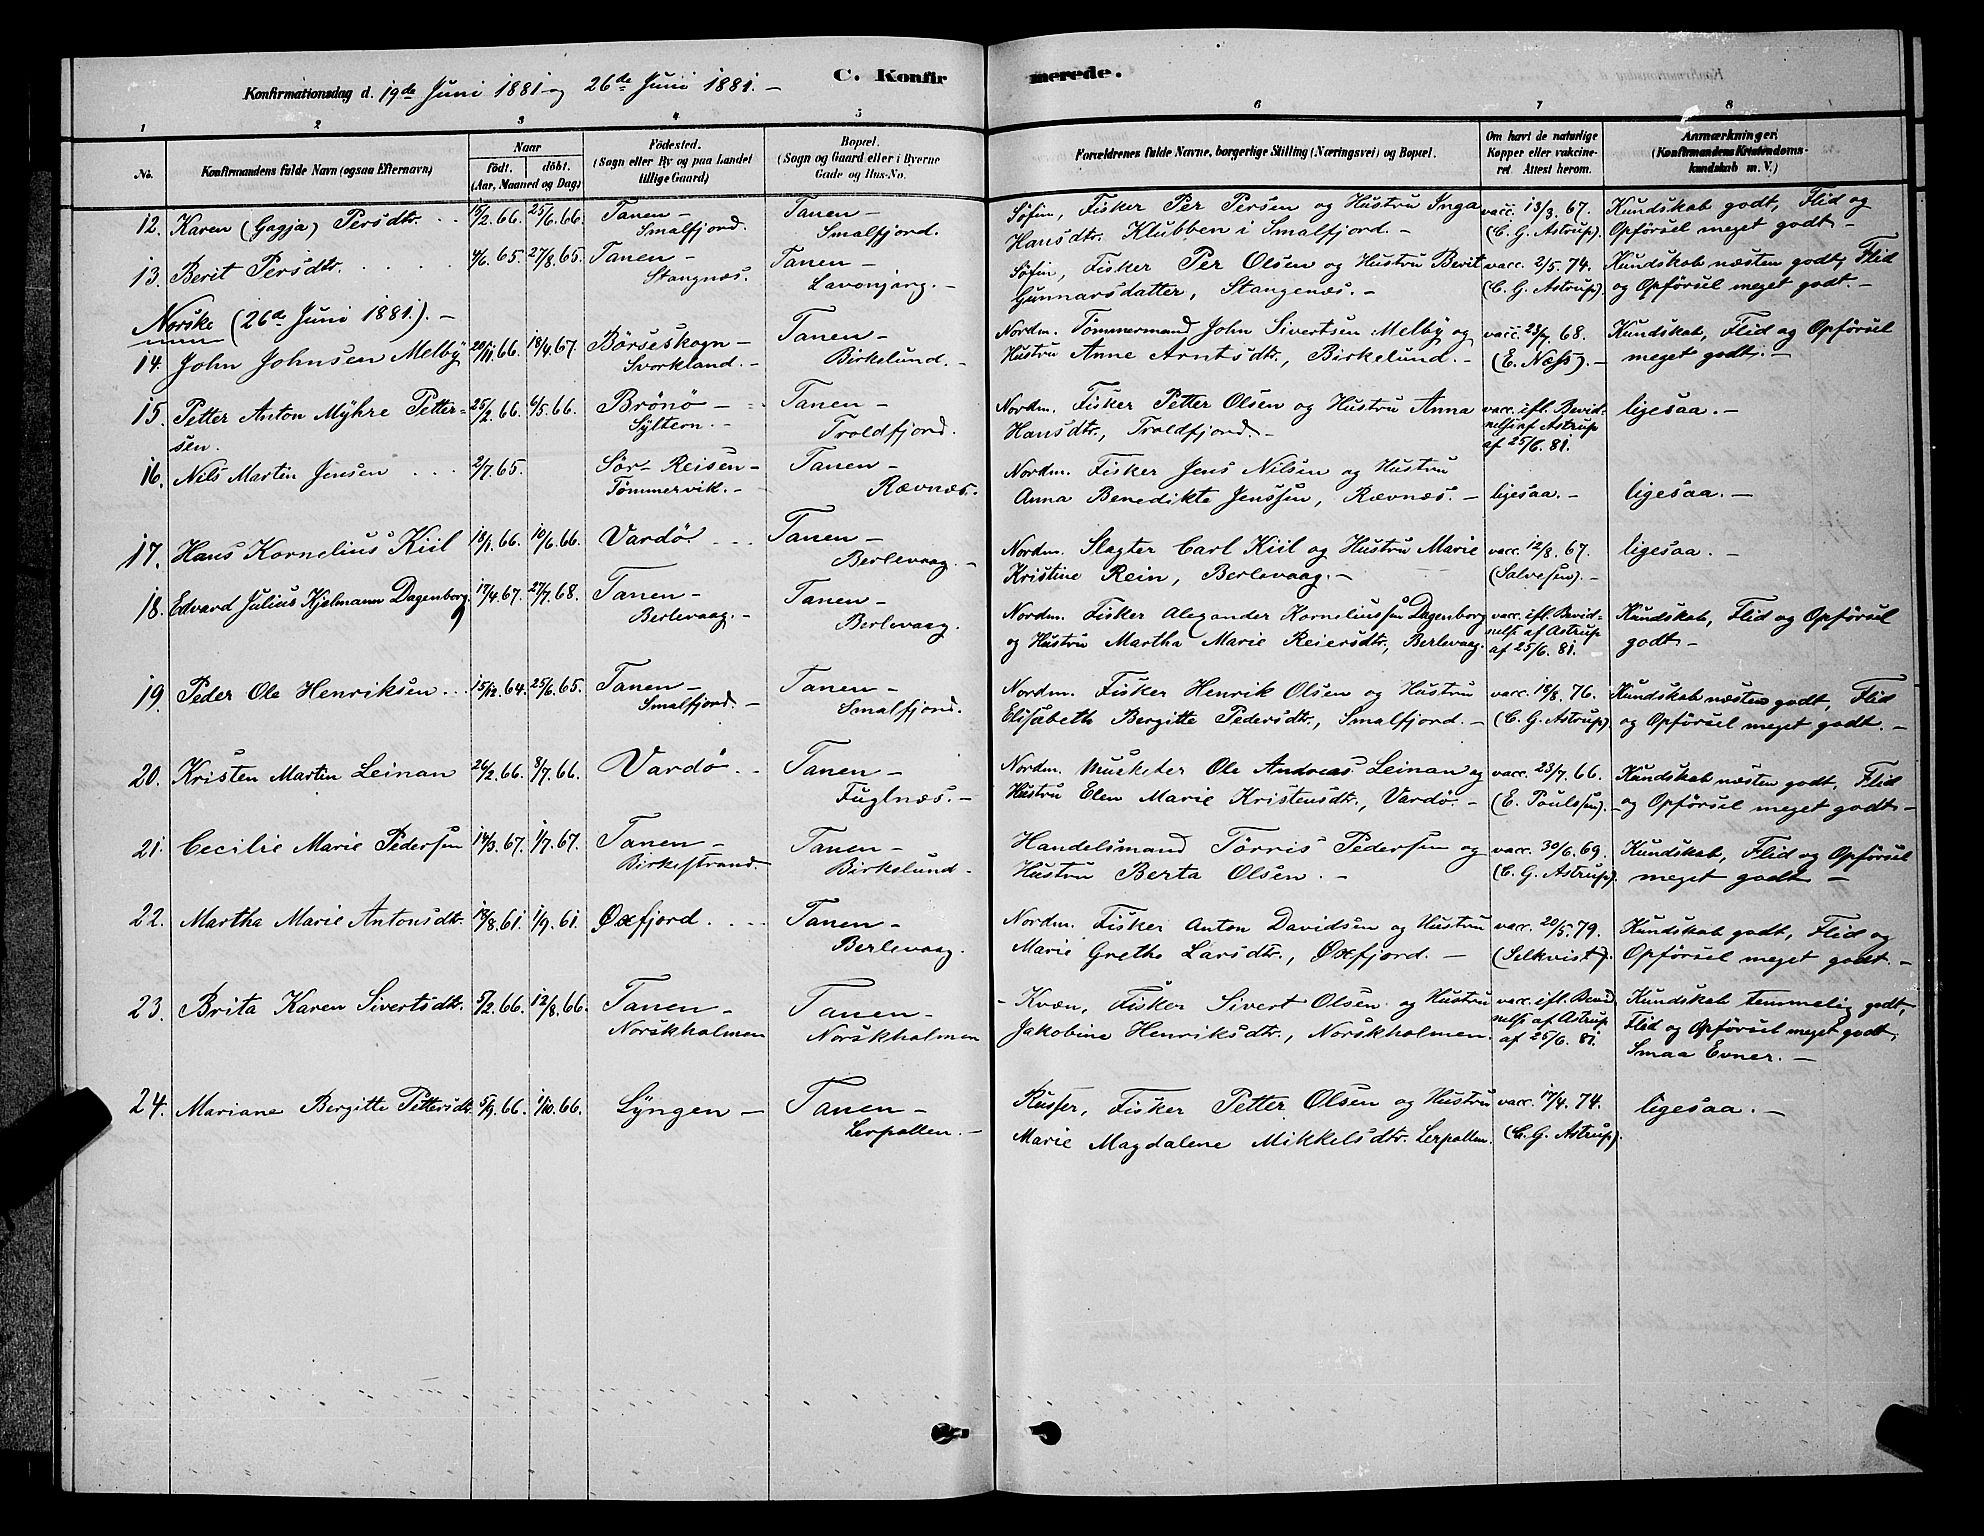 C. Konfirmerede.
Konfirmationsdag d. 19de Juni 1881 og 26de Juni 1881. —
1 2 3 4 5 6 7 8
No. Konfirmandens fulde Navn (ogsaa Efternavn) Naar født. døbt. (Aar, Maaned og Dag) Fødested. (Sogn eller By og paa Landet tillige Gaard) Bopæl. (Sogn og Gaard eller i Byerne Gade og Hus-No. Forældrenes fulde Navne, borgerlige Stilling (Næringsvei) og Bopæl. Om havt de naturlige Kopper eller vakcineret. Attest herom. Anmærkninger. (Konfirmandens Kristendomskundskab m. V.)
12. Karen (Gagja) Persdtr. 15/2.66. 25/6.66. Tanen — Smalfjord. Tanen — Smalfjord. Søfin, Fisker Per Persen og Hustru Inga vacc. 13/3.67. Kundskab godt, Flid og
Hansdtr. Klubben i Smalfjord. — (C. G. Astrup). Opførsel meget godt —
13. Berit Persdtr. 4/6.65. 27/8.65. Tanen — Stangnæs. Tanen — Lavonjarg. — Søfin, Fisker Per Olsen og Hustru Berit vacc. 2/5.74. Kundskab næsten godt, Flid
Gunnarsdatter, Stangenæs. — (C. G. Astrup). og Opførsel meget godt. —
Norske (26de Juni 1881.). —
14. John Johnsen Melby 20/11.66. 18/4.67. Børseskogn — Svorkland. — Tanen — Birkelund. — Nordm. Tømmermand John Sivertsen Melby og vacc. 23/7.68. Kundskab, Flid og Opførsel
Hustru Anne Arntsdtr., Birkelund. — (E. Næss). — meget godt. —
15. Petter Anton Myhre Petter- 25/2.66. 6/5.66. Brønø — Tanen — Nordm. Fisker Petter Olsen og Hustru Anna vacc. ifl. Bevid- ligesaa. —
sen. Syltern. — Troldfjord. Hansdtr., Troldfjord. — nelse af Astrup
af 25/6.81.
16. Nils Martin Jensen 2/7.65. Sør-Reisen — Tømmervik. — Tanen — Rævnæs. Nordm. Fisker Jens Nilsen og Hustru
Anna Benedikte Jenssen, Rævnæs. — ligesaa. — ligesaa. —
17. Hans Kornelius Kiil 18/1.66. 10/6.66. Vardø Tanen — Berlevaag. — Nordm. Slagter Carl Kiil og Hustru Marie vacc. 12/8.67. ligesaa. —
Kristine Rein, Berlevaag. — (Salvesen). —
18. Edvard Julius Kjelmann Dagenborg. 17/4.67. 27/7.68. Tanen — Berlevaag. — Tanen — Berlevaag. Nordm. Fisker Alexander Korneliussen Dagenborg vacc. ifl. Bevid- Kundskab, Flid og Opførsel
og Hustru Martha Marie Reiersdtr., Berlevaag. nelse af Astrup godt —
af 25/6.81.
19. Peder Ole Henriksen 15/12.64. 25/6.65. Tanen — Smalfjord. — Tanen — Smalfjord. Nordm. Fisker Henrik Olsen og Hustru vacc. 18/8.76. Kundskab næsten godt, Flid
Elisabeth Bergitte Pedersdtr., Smalfjord. — (C. G. Astrup). og Opførsel meget godt. —
20. Kristen Martin Leinan 26/2.66. 8/7.66. Vardø. — Tanen — Fuglnæs. — Nordm. Musketer Ole Andreas Leinan og vacc. 23/7.66. Kundskab næsten godt, Flid
Hustru Elen Marie Kristensdtr., Vardø. — (E. Poulssen). og Opførsel meget godt —
21. Cecilie Marie Pedersen 14/3.67. 1/7.67. Tanen — Birkestrand. Tanen — Birkelund. Handelsmand Tørris Pedersen og vacc. 30/6.69. Kundskab, Flid og Opførsel
Hustru Berta Olsen. — (C. G. Astrup). meget godt —
22. Martha Marie Antonsdtr. 18/8.61. 1/9.61. Oxfjord. Tanen — Berlevaag. Nordm. Fisker Anton Davidsen og Hustru vacc. 20/5.79. Kundskab godt, Flid og
Marie Grethe Larsdtr., Oxfjord. — (Selkvist). Opførsel meget godt. —
23. Brita Karen Sivertsdtr. 5/2.66. 12/8.66. Tanen — Norskholmen Tanen — Norskholmen — Kvæn, Fisker Sivert Olsen og Hustru vacc. ifl. Bevid- Kundskab temmelig godt,
Jakobine Henriksdtr., Norskholmen. nelse af Astrup Flid og Opførsel meget godt.
af 25/6.81. Smaa Evner. —
24. Mariane Bergitte Pettersdtr. 5/9.66. 1/10.66. Lyngen — Tanen — Lerpollen. — Russer, Fisker Petter Olsen og Hustru vacc. 17/4.74. ligesaa. —
Marie Magdalene Mikkelsdtr. Lerpollen. (C. G. Astrup).